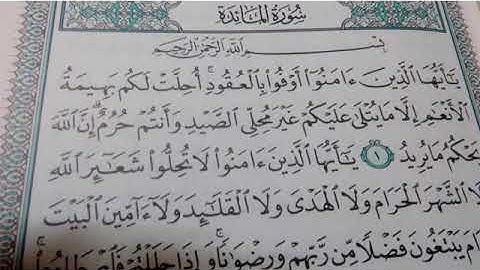 سُورَةُ المَائِدَةِ
بِسْمِ اللَّهِ الرَّحْمَٰنِ الرَّحِيمِ
يَٰٓأَيُّهَا الَّذِينَ ءَامَنُوٓا۟ أَوْفُوا۟ بِالْعُقُودِ ۚ أُحِلَّتْ لَكُم بَهِيمَةُ
الْأَنْعَٰمِ إِلَّا مَا يُتْلَىٰ عَلَيْكُمْ غَيْرَ مُحِلِّي الصَّيْدِ وَأَنتُمْ حُرُمٌ ۗ إِنَّ اللَّهَ
يَحْكُمُ مَا يُرِيدُ ۝١ يَٰٓأَيُّهَا الَّذِينَ ءَامَنُوا۟ لَا تُحِلُّوا۟ شَعَٰٓئِرَ اللَّهِ
الشَّهْرَ الْحَرَامَ وَلَا الْهَدْىَ وَلَا الْقَلَٰٓئِدَ وَلَآ ءَآمِّينَ الْبَيْتَ
يَبْتَغُونَ فَضْلًا مِّن رَّبِّهِمْ وَرِضْوَٰنًا ۚ وَإِذَا حَلَلْتُمْ فَاصْطَادُوا۟ ۚ